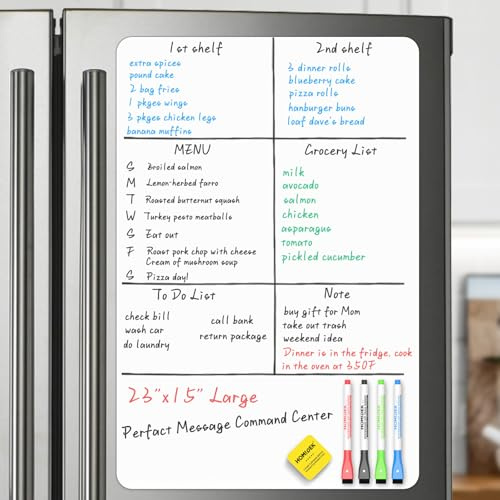 1st shelf
extra spices
pound cake
2 bag fries
1 pkges wings
3 pkges chicken legs
banana muffins
2nd shelf
3 dinner rolls
blueberry cake
pizza rolls
hanburger buns
loaf dave's bread
MENU
S Broiled salmon
M Lemon-herbed farro
T Roasted butternut squash
W Turkey pesto meatballs
S Eat out
F Roast pork chop with cheese
Cream of mushroom soup
S Pizza day!
Grocery List
milk
avocado
salmon
chicken
asparagus
tomato
pickled cucumber
To Do List
check bill
wash car
do laundry
call bank
return package
Note
buy gift for Mom
take out trash
weekend idea
Dinner is in the fridge, cook
in the oven at 350F
23"x15" Large
Perfact Message Command Center
HOMIDEK